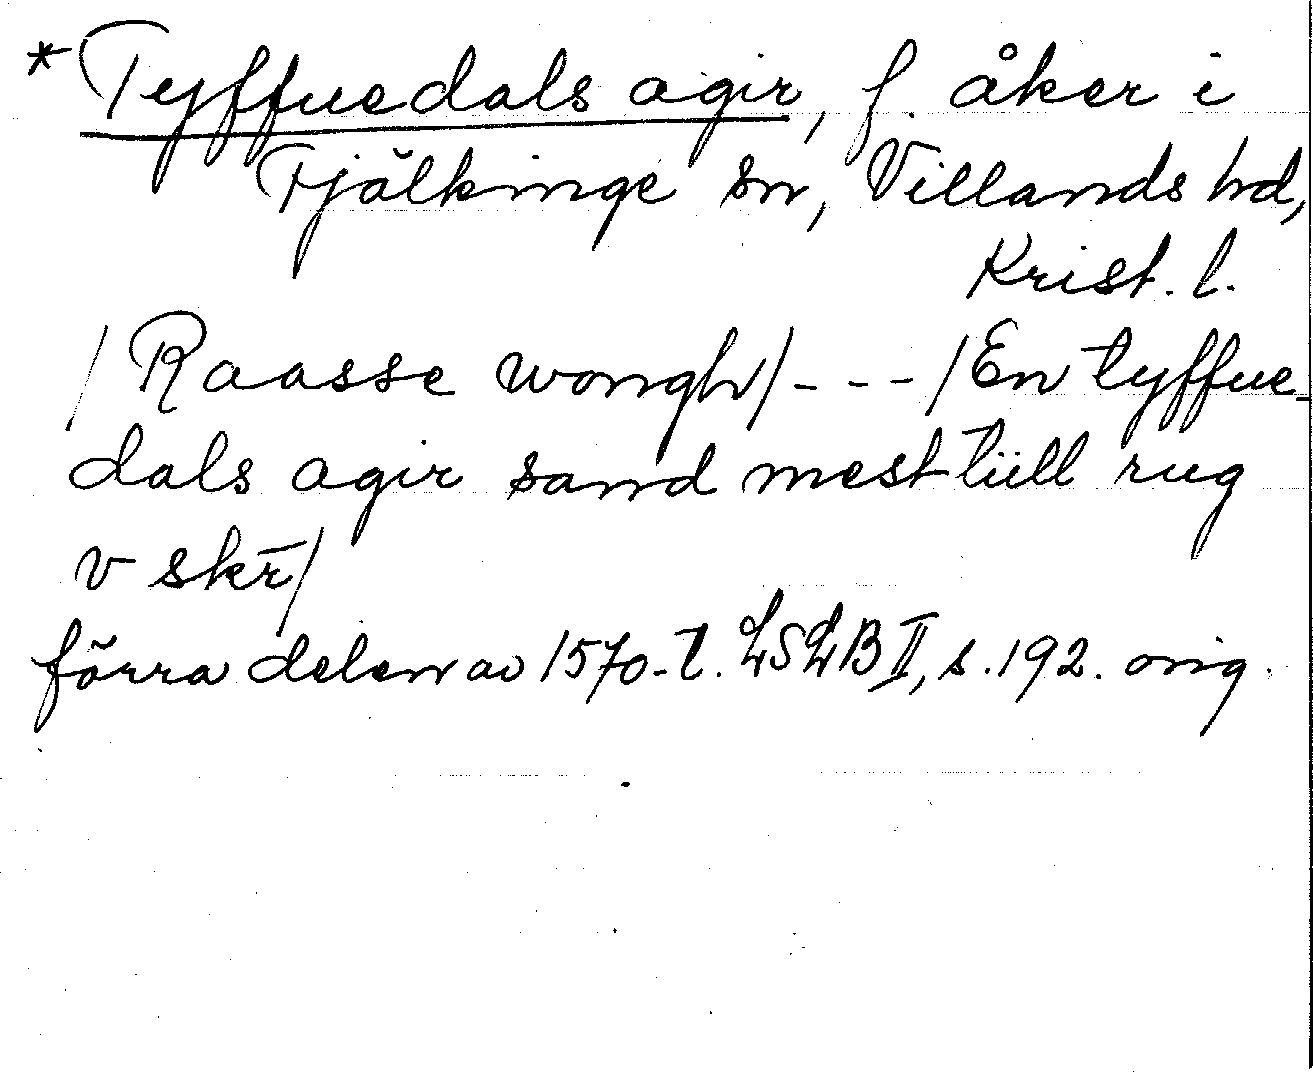 * Tyffuedals agir, f. åker i
Fjälkinge sn, Villands hd,
Krist. l.
/Raasse wongh/---/En tyffue-
dals agir sand mest tiill rug
v skr̄/
förra delen av 1570-t. LSLB II, s. 192. orig.